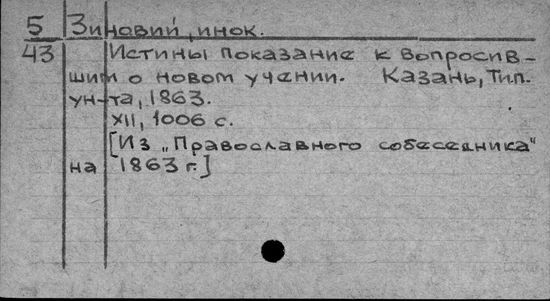 5 Зиновий, инок.
43 Истины показание к вопросив-
шим о новом учении. Казань, Тип.
ун-та, 1863.
XII, 1006 с.
[Из „Православного собеседника"
на 1863 г.]